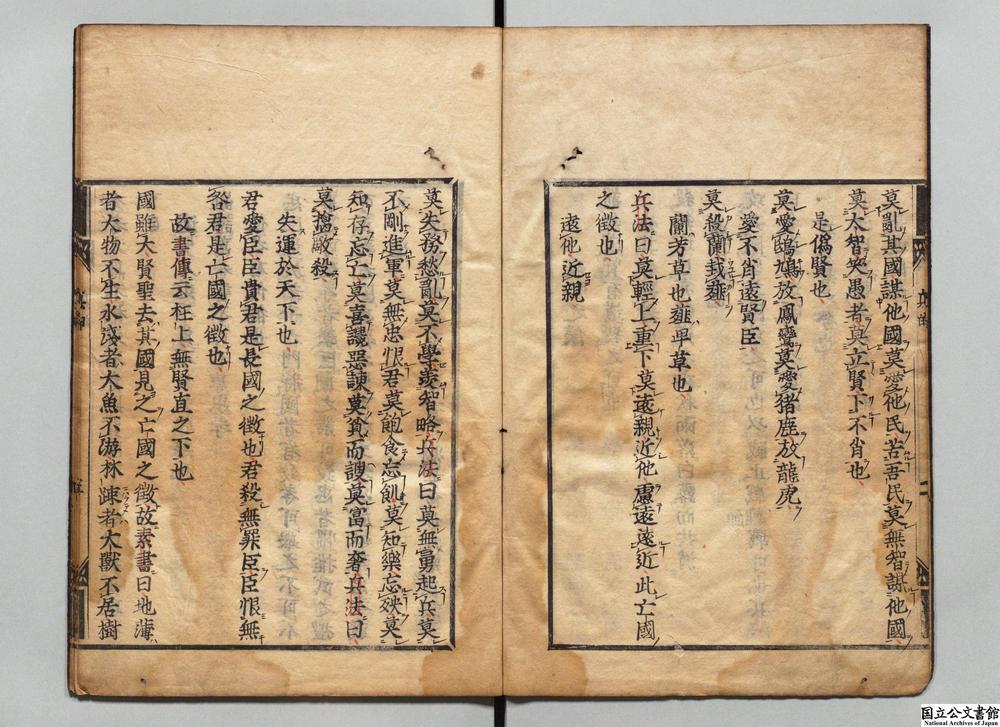 莫亂其國謀他國莫愛他民苦吾民莫無智謀他國
是偽賢也
莫大智笑愚者莫立賢下不肖也
莫愛鴟鳩放鳳鸞莫愛猪鹿放龍虎
愛不肖遠賢臣
莫殺蘭我薤
蘭芳草也薤卑草也
兵法曰莫輕上重下莫遠親近他慮遠遠近此亡國
之徴也
遠他近親
莫失務愁亂莫不學羨智略兵法曰莫無勇起兵莫
不剛進軍莫無忠恨君莫飽食忘飢莫知樂忘殃莫
知存忘亡莫喜讒惡諫莫貧而諛莫富而奢兵法曰
莫擒敵殺
失運於天下也
君愛臣臣貴君是長國之徴也君殺無罪臣臣恨無
咎君是亡國之徴也
故書傳云在上無賢直之下也
國雖大賢聖去其國見之亡國之徴故素書曰地薄
者大物不生水淺者大魚不游林踈者大獸不居樹
国立公文書館
National Archives of Japan